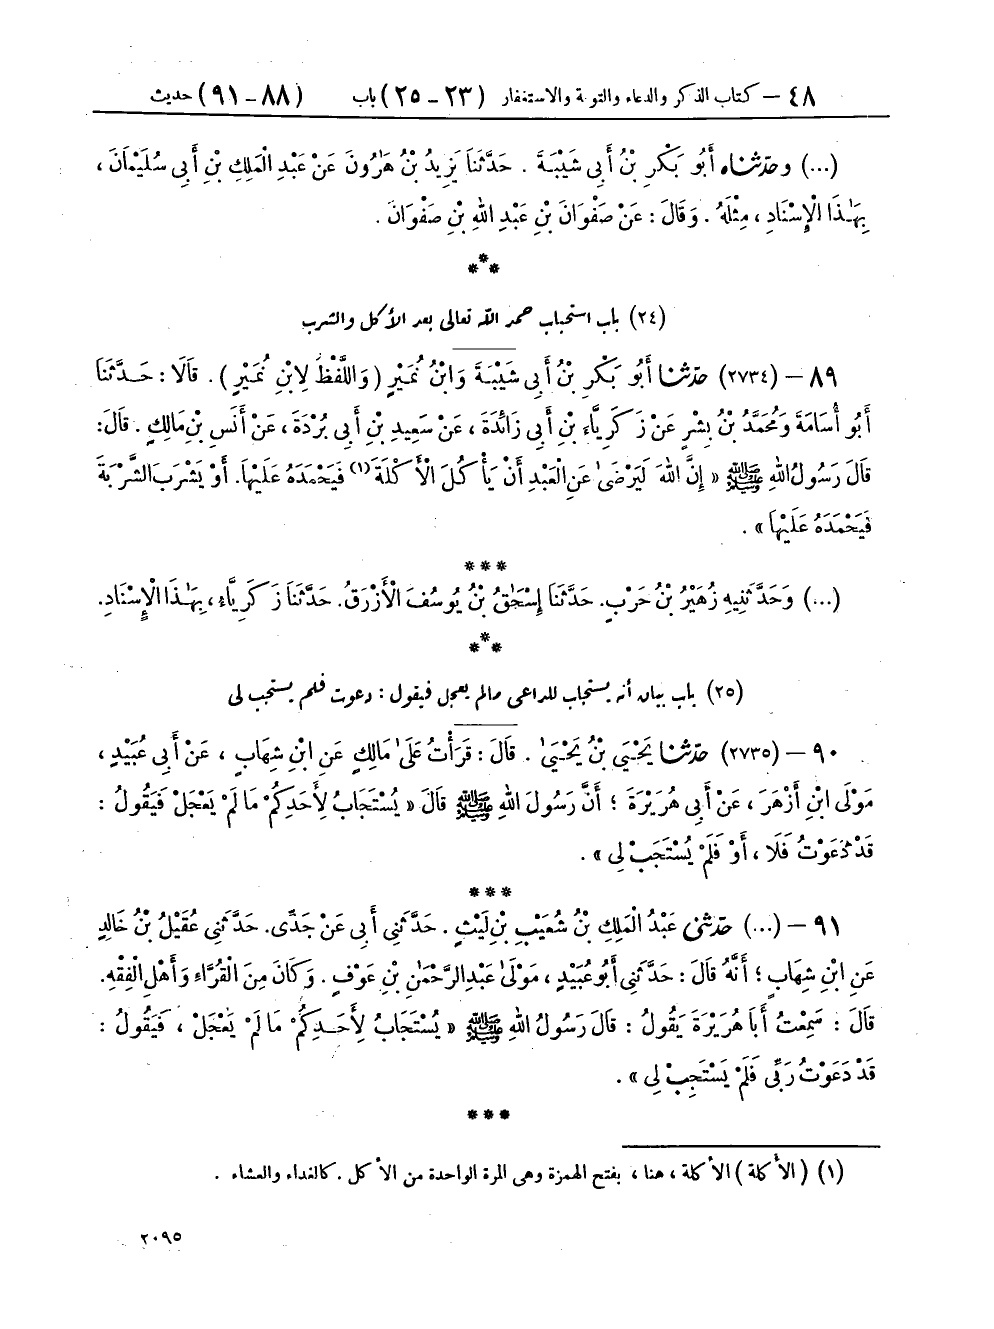 ٤٨ – كتاب الذكر والدعاء والتوبة والاستغفار (٢٣ – ٢٥) باب (٨٨ – ٩١) حديث
(...) وحدّثناه أَبُو بَكْرِ بْنُ أَبِي شَيْبَةَ . حَدَّثَنَا يَزِيدُ بْنُ هَٰرُونَ عَنْ عَبْدِ الْمَلِكِ بْنِ أَبِي سُلَيْمَانَ ،
بِهَٰذَا الْإِسْنَادِ ، مِثْلَهُ . وَقَالَ : عَنْ صَفْوَانَ بْنِ عَبْدِ اللهِ بْنِ صَفْوَانَ .
***
(٢٤) باب استحباب حمد الله تعالى بعد الأكل والشرب
٨٩ – (٢٧٣٤) حدّثنا أَبُو بَكْرِ بْنُ أَبِي شَيْبَةَ وَابْنُ نُمَيْرٍ (وَاللَّفْظُ لِابْنِ نُمَيْرٍ) . قَالَا : حَدَّثَنَا
أَبُو أُسَامَةَ وَمُحَمَّدُ بْنُ بِشْرٍ عَنْ زَكَرِيَّاءَ بْنِ أَبِي زَائِدَةَ ، عَنْ سَعِيدِ بْنِ أَبِي بُرْدَةَ ، عَنْ أَنَسِ بْنِ مَالِكٍ . قَالَ :
قَالَ رَسُولُ اللهِ ﷺ « إِنَّ اللهَ لَيَرْضَىٰ عَنِ الْعَبْدِ أَنْ يَأْكُلَ الْأَكْلَةَ (١) فَيَحْمَدَهُ عَلَيْهَا. أَوْ يَشْرَبَ الشَّرْبَةَ
فَيَحْمَدَهُ عَلَيْهَا » .
***
(...) وَحَدَّثَنِيهِ زُهَيْرُ بْنُ حَرْبٍ. حَدَّثَنَا إِسْحَٰقُ بْنُ يُوسُفَ الْأَزْرَقُ. حَدَّثَنَا زَكَرِيَّاءُ ، بِهَٰذَا الْإِسْنَادِ.
***
(٢٥) باب بيان أنه يستجاب للداعى مالم يعجل فيقول : دعوت فلم يستجب لى
٩٠ – (٢٧٣٥) حدّثنا يَحْيَىٰ بْنُ يَحْيَىٰ . قَالَ : قَرَأْتُ عَلَىٰ مَالِكٍ عَنِ ابْنِ شِهَابٍ ، عَنْ أَبِي عُبَيْدٍ ،
مَوْلَى ابْنِ أَزْهَرَ ، عَنْ أَبِي هُرَيْرَةَ ؛ أَنَّ رَسُولَ اللهِ ﷺ قَالَ « يُسْتَجَابُ لِأَحَدِكُمْ مَا لَمْ يَعْجَلْ فَيَقُولُ :
قَدْ دَعَوْتُ فَلَا ، أَوْ فَلَمْ يُسْتَجَبْ لِي » .
***
٩١ – (...) حدّثني عَبْدُ الْمَلِكِ بْنُ شُعَيْبِ بْنِ لَيْثٍ . حَدَّثَنِي أَبِي عَنْ جَدِّي. حَدَّثَنِي عُقَيْلُ بْنُ خَالِدٍ
عَنِ ابْنِ شِهَابٍ ؛ أَنَّهُ قَالَ : حَدَّثَنِي أَبُو عُبَيْدٍ ، مَوْلَىٰ عَبْدِ الرَّحْمَٰنِ بْنِ عَوْفٍ . وَكَانَ مِنَ الْقُرَّاءِ وَأَهْلِ الْفِقْهِ.
قَالَ : سَمِعْتُ أَبَا هُرَيْرَةَ يَقُولُ : قَالَ رَسُولُ اللهِ ﷺ « يُسْتَجَابُ لِأَحَدِكُمْ مَا لَمْ يَعْجَلْ ، فَيَقُولُ :
قَدْ دَعَوْتُ رَبِّي فَلَمْ يَسْتَجِبْ لِي » .
***
(١) (الأكلة) الأكلة ، هنا ، بفتح الهمزة وهى المرة الواحدة من الأكل . كالغداء والعشاء .
٢٠٩٥